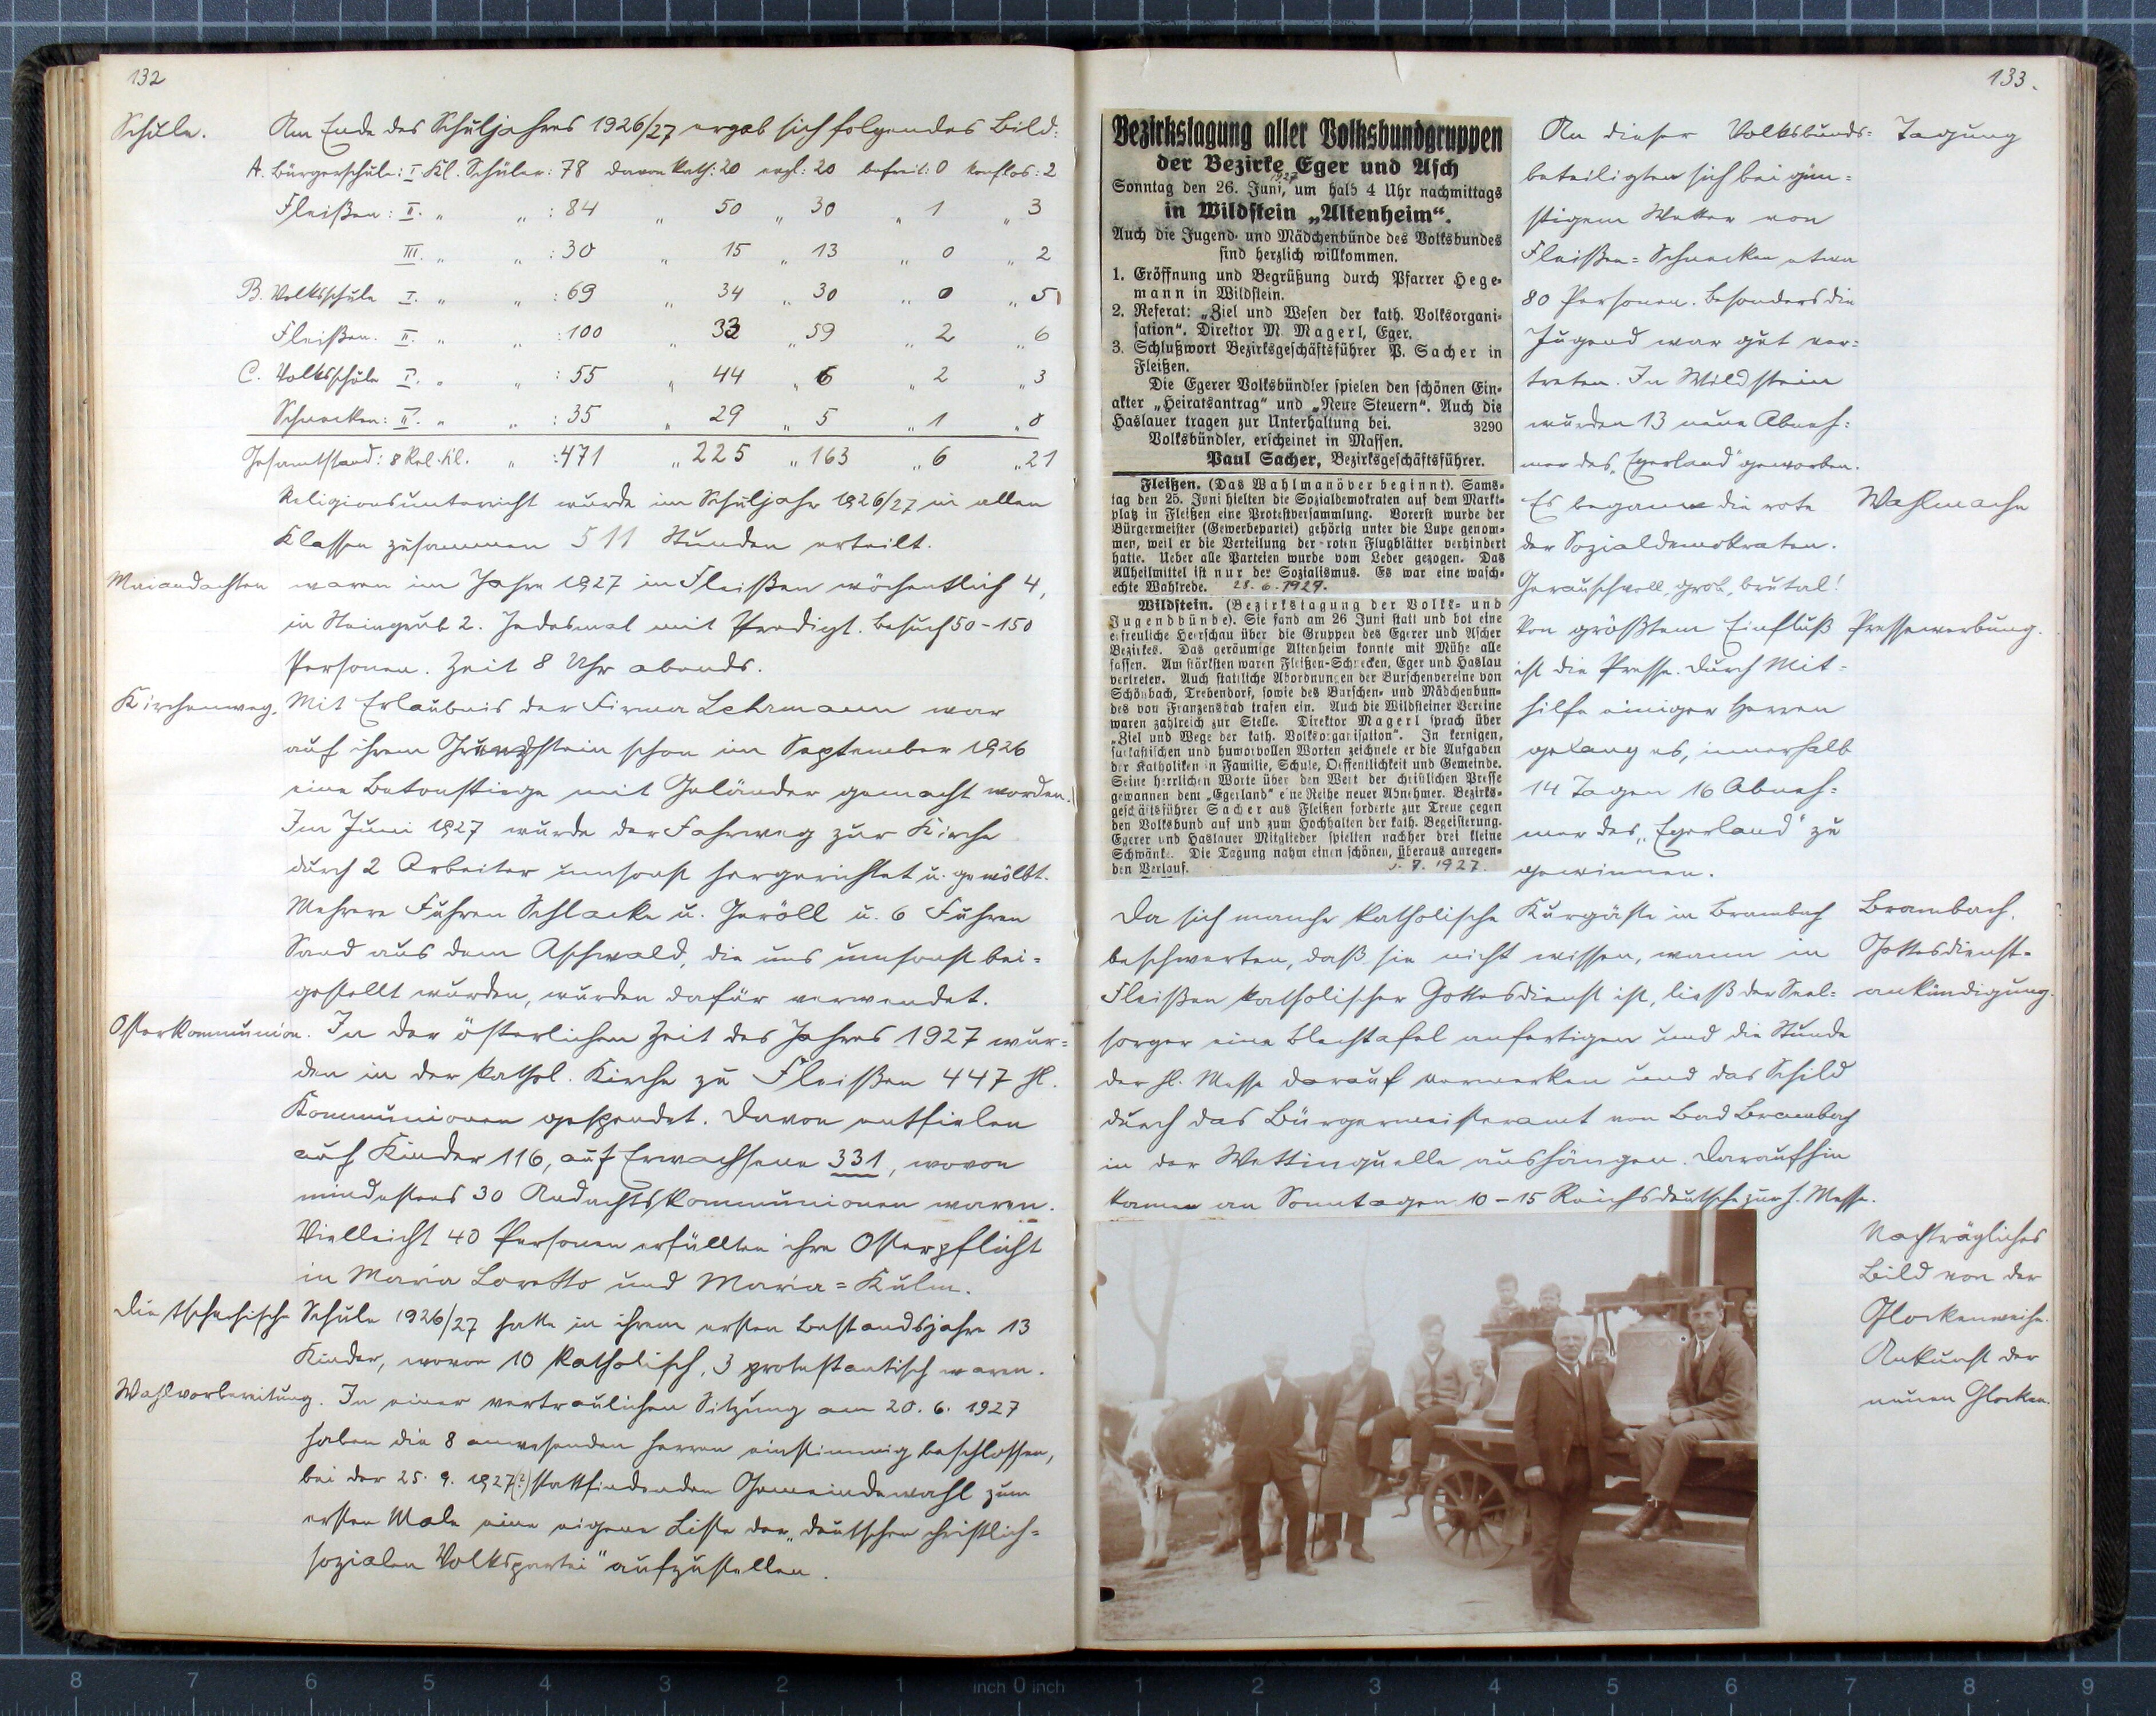 132
Schule. Am Ende des Schuljahres 1926/27 ergab sich folgendes Bild:
A. Bürgerschule: I. Kl. Schüler: 78 davon kath: 20 evgl: 20 befreit: 0 konflos: 2
Fleißen: II. " " : 84 " 50 " 30 " 1 " 3
III. " " : 30 " 15 " 13 " 0 " 2
B. Volksschule I. " " : 69 " 34 " 30 " 0 " 5
Fleißen. II. " " : 100 " 33 " 59 " 2 " 6
C. Volksschule I. " " : 55 " 44 " 6 " 2 " 3
Schnecken: II. " " : 35 " 29 " 5 " 1 " 0
Gesamtstand: 8 Rel. Kl. " : 471 " 225 " 163 " 6 " 21
Religionsunterricht wurde im Schuljahr 1926/27 in allen
Klassen zusammen 511 Stunden erteilt.
Maiandachten waren im Jahre 1927 in Fleißen wöchentlich 4,
in Steingrub 2. Jedesmal mit Predigt. Besuch 50-150
Personen. Zeit 8 Uhr abends.
Kirchenweg. Mit Erlaubnis der Firma Lehrmann war
auf ihrem schon im September 1926
eine Betonstiege mit Geländer gemacht worden.
Im Juni 1927 wurde der Fahrweg zur Kirche
durch 2 Arbeiter umsonst hergerichtet u. gewölbt.
Mehrere Fuhren Schlacke u. Geröll u. 6 Fuhren
Sand aus dem Aschwald, die uns umsonst bei=
gestellt wurden, wurden dafür verwendet.
Osterkommunion. In der österlichen Zeit des Jahres 1927 wur=
den in der kathol. Kirche zu Fleißen 447 hl.
Kommunionen gespendet. Davon entfielen
auf Kinder 116, auf Erwachsene 331, wovon
mindestens 30 Andachtskommunionen waren.
Vielleicht 40 Personen erfüllten ihre Osterpflicht
in Maria Loretto und Maria=Kulm.
Die tschechische Schule 1926/27 hatte in ihrem ersten Bestandsjahre 13
Kinder, wovon 10 katholisch, 3 protestantisch waren.
Wahlvorbereitung. In einer vertraulichen Sitzung am 20. 6. 1927
haben die 8 anwesenden Herren einstimmig beschlossen,
bei der 25. 9. 1927(?) stattfindenden Gemeindewahl zum
ersten Male eine eigene Liste der „deutschen christlich=
sozialen Volkspartei" aufzustellen.
133.
Bezirkstagung aller Volksbundgruppen
der Bezirke Eger und Asch
1927
Sonntag den 26. Juni, um halb 4 Uhr nachmittags
in Wildstein „Altenheim".
Auch die Jugend- und Mädchenbünde des Volksbundes
sind herzlich willkommen.
1. Eröffnung und Begrüßung durch Pfarrer Hege-
mann in Wildstein.
2. Referat: „Ziel und Wesen der kath. Volksorgani-
sation". Direktor M. Magerl, Eger.
3. Schlußwort Bezirksgeschäftsführer P. Sacher in
Fleißen.
Die Egerer Volksbündler spielen den schönen Ein-
akter „Heiratsantrag" und „Neue Steuern". Auch die
Haslauer tragen zur Unterhaltung bei. 3290
Volksbündler, erscheinet in Massen.
Paul Sacher, Bezirksgeschäftsführer.
Fleißen. (Das Wahlmanöver beginnt). Sams-
tag den 25. Juni hielten die Sozialdemokraten auf dem Markt-
platz in Fleißen eine Protestversammlung. Vorerst wurde der
Bürgermeister (Gewerbepartei) gehörig unter die Lupe genom-
men, weil er die Verteilung der roten Flugblätter verhindert
hatte. Ueber alle Parteien wurde vom Leder gezogen. Das
Allheilmittel ist nur der Sozialismus. Es war eine wasch-
echte Wahlrede. 28. 6. 1927.
Wildstein. (Bezirkstagung der Volks- und
Jugendbünde). Sie fand am 26 Juni statt und bot eine
erfreuliche Heerschau über die Gruppen des Egerer und Ascher
Bezirkes. Das geräumige Altenheim konnte mit Mühe alle
fassen. Am stärksten waren Fleißen-Schnecken, Eger und Haslau
vertreten. Auch stattliche Abordnungen der Burschenvereine von
Schönbach, Trebendorf, sowie des Burschen- und Mädchenbun-
des von Franzensbad trafen ein. Auch die Wildsteiner Vereine
waren zahlreich zur Stelle. Direktor Magerl sprach über
„Ziel und Wege der kath. Volksorganisation". In kernigen,
sarkastischen und humorvollen Worten zeichnete er die Aufgaben
der Katholiken in Familie, Schule, Oeffentlichkeit und Gemeinde.
Seine herrlichen Worte über den Wert der christlichen Presse
gewannen dem „Egerland" eine Reihe neuer Abnehmer. Bezirks-
geschäftsführer Sacher aus Fleißen forderte zur Treue gegen
den Volksbund auf und zum Hochhalten der kath. Begeisterung.
Egerer und Haslauer Mitglieder spielten nachher drei kleine
Schwänke. Die Tagung nahm einen schönen, überaus anregen-
den Verlauf. 7. 1927.
An dieser Volksbunds= Tagung
beteiligten sich bei gün=
stigem Wetter von
Fleißen=Schnecken etwa
80 Personen. Besonders die
Jugend war gut ver=
treten. In Wildstein
wurden 13 neue Abneh=
mer des „Egerland" geworben.
Es begann die rote Wahlmache
der Sozialdemokraten.
Geräuschvoll, grob, brutal!
Von größtem Einfluß Pressewerbung.
ist die Presse. Durch Mit=
hilfe einiger Herren
gelang es, innerhalb
14 Tagen 16 Abneh=
mer des „Egerland" zu
gewinnen.
Da sich manche katholische Kurgäste in Brambach Brambach.
beschwerten, daß sie nicht wissen, wann in Gottesdienst-
Fleißen katholischer Gottesdienst ist, ließ der Seel= ankündigung.
sorger eine Blechtafel anfertigen und die Stunde
der hl. Messe darauf vermerken und das Schild
durch das Bürgermeisteramt von Bad Brambach
in der Wettinquelle aushängen. Daraufhin
kamen an Sonntagen 10-15 Reichsdeutsche zur h. Messe.
Nachträgliches
Bild von der
Glockenweihe.
Ankunft der
neuen Glocken.
8 7 6 5 4 3 2 1 inch 0 inch 1 2 3 4 5 6 7 8 9